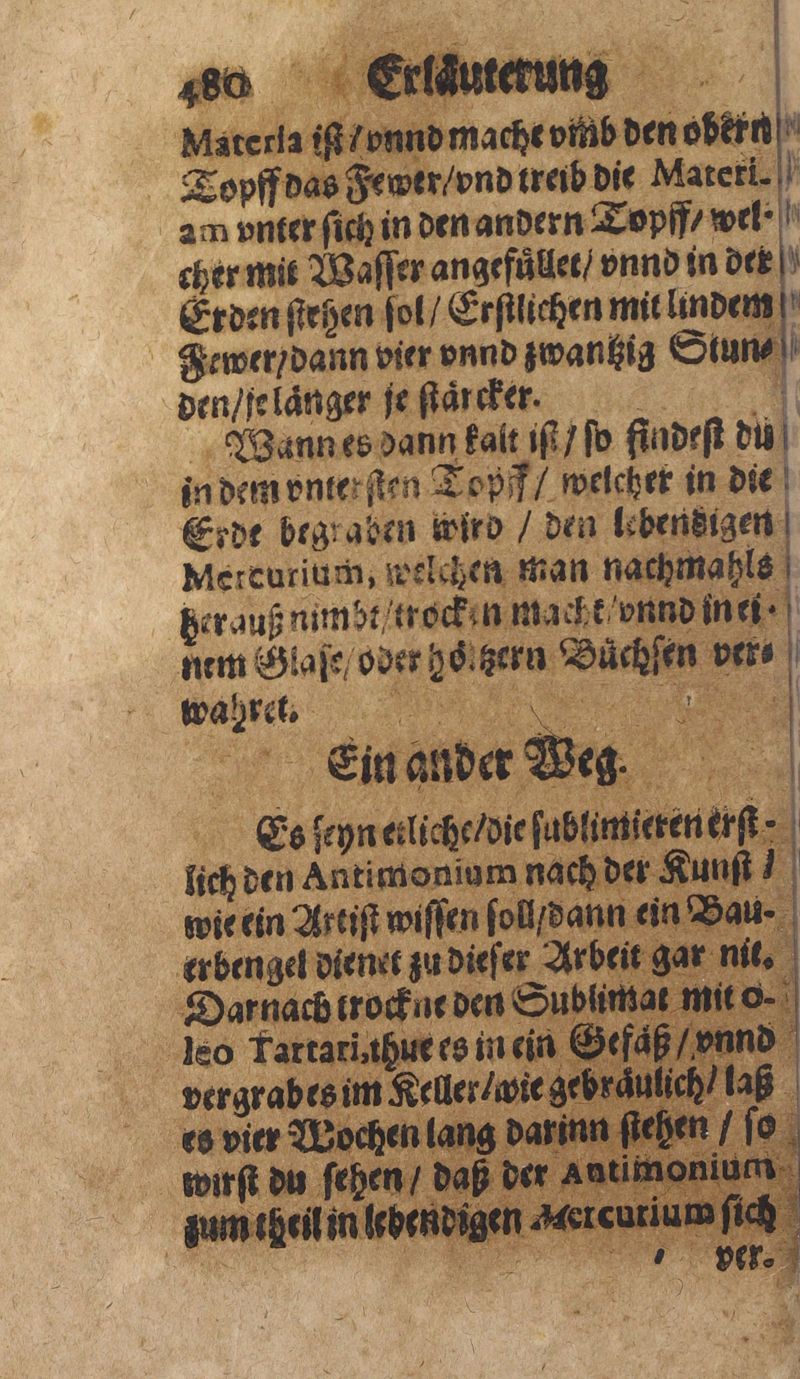 480 Erläuterung
Materia iſt / vnnd mache vmb den obern
Topff das Fewer / vnd treib die Materi-
am vnter ſich in den andern Topff / wel-
cher mit Waſſer angefüllet / vnnd in der
Erden ſtehen ſol / Erſtlichen mit lindem
Fewer / dann vier vnnd zwantzig Stun-
den / je länger je ſtärcker.
Wann es dann kalt iſt / ſo findeſt du
in dem vnterſten Topff / welcher in die
Erde begraben wird / den lebendigen
Mercurium, welchen man nachmahls
herauß nimbt / trocken macht / vnnd in ei-
nem Glaſe / oder höltzern Büchſen ver-
wahret.
Ein ander Weg.
Es ſeyn etliche / die ſublimieren erſt-
lich den Antimonium nach der Kunſt /
wie ein Artiſt wiſſen ſoll / dann ein Bau-
erbengel dienet zu dieſer Arbeit gar nit.
Darnach trockne den Sublimat mit o-
leo Tartari, thue es in ein Gefäß / vnnd
vergrab es im Keller / wie gebräulich / laß
es vier Wochen lang darinn ſtehen / ſo
wirſt du ſehen / daß der Antimonium
zum theil in lebendigen Mercurium ſich
ver-